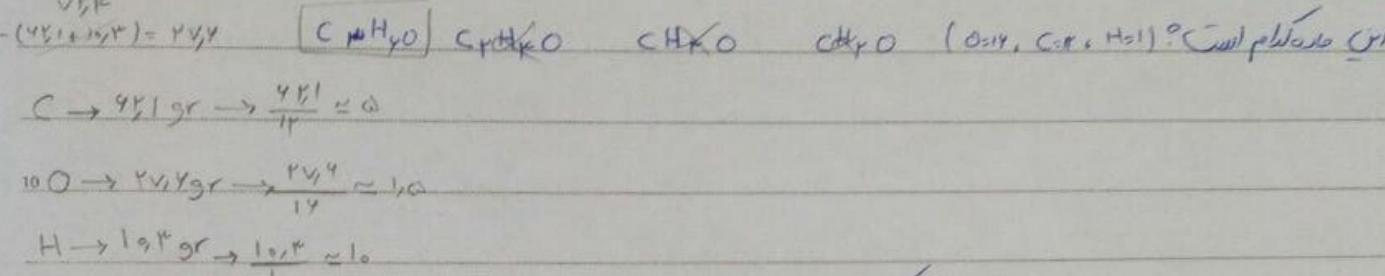 این ماده کدام است؟ (O=۱۶, C=۱۲, H=۱) CH₂O CH₄O C₂H₄O C₃H₆O -(۶۲,۱+۱۰,۳)=۲۷,۶
C → ۶۲,۱ gr → ۶۲,۱/۱۲ ≃ ۵
10 O → ۲۷,۶ gr → ۲۷,۶/۱۶ ≃ ۱,۵
H → ۱۰,۳ gr → ۱۰,۳/۱ ≃ ۱۰